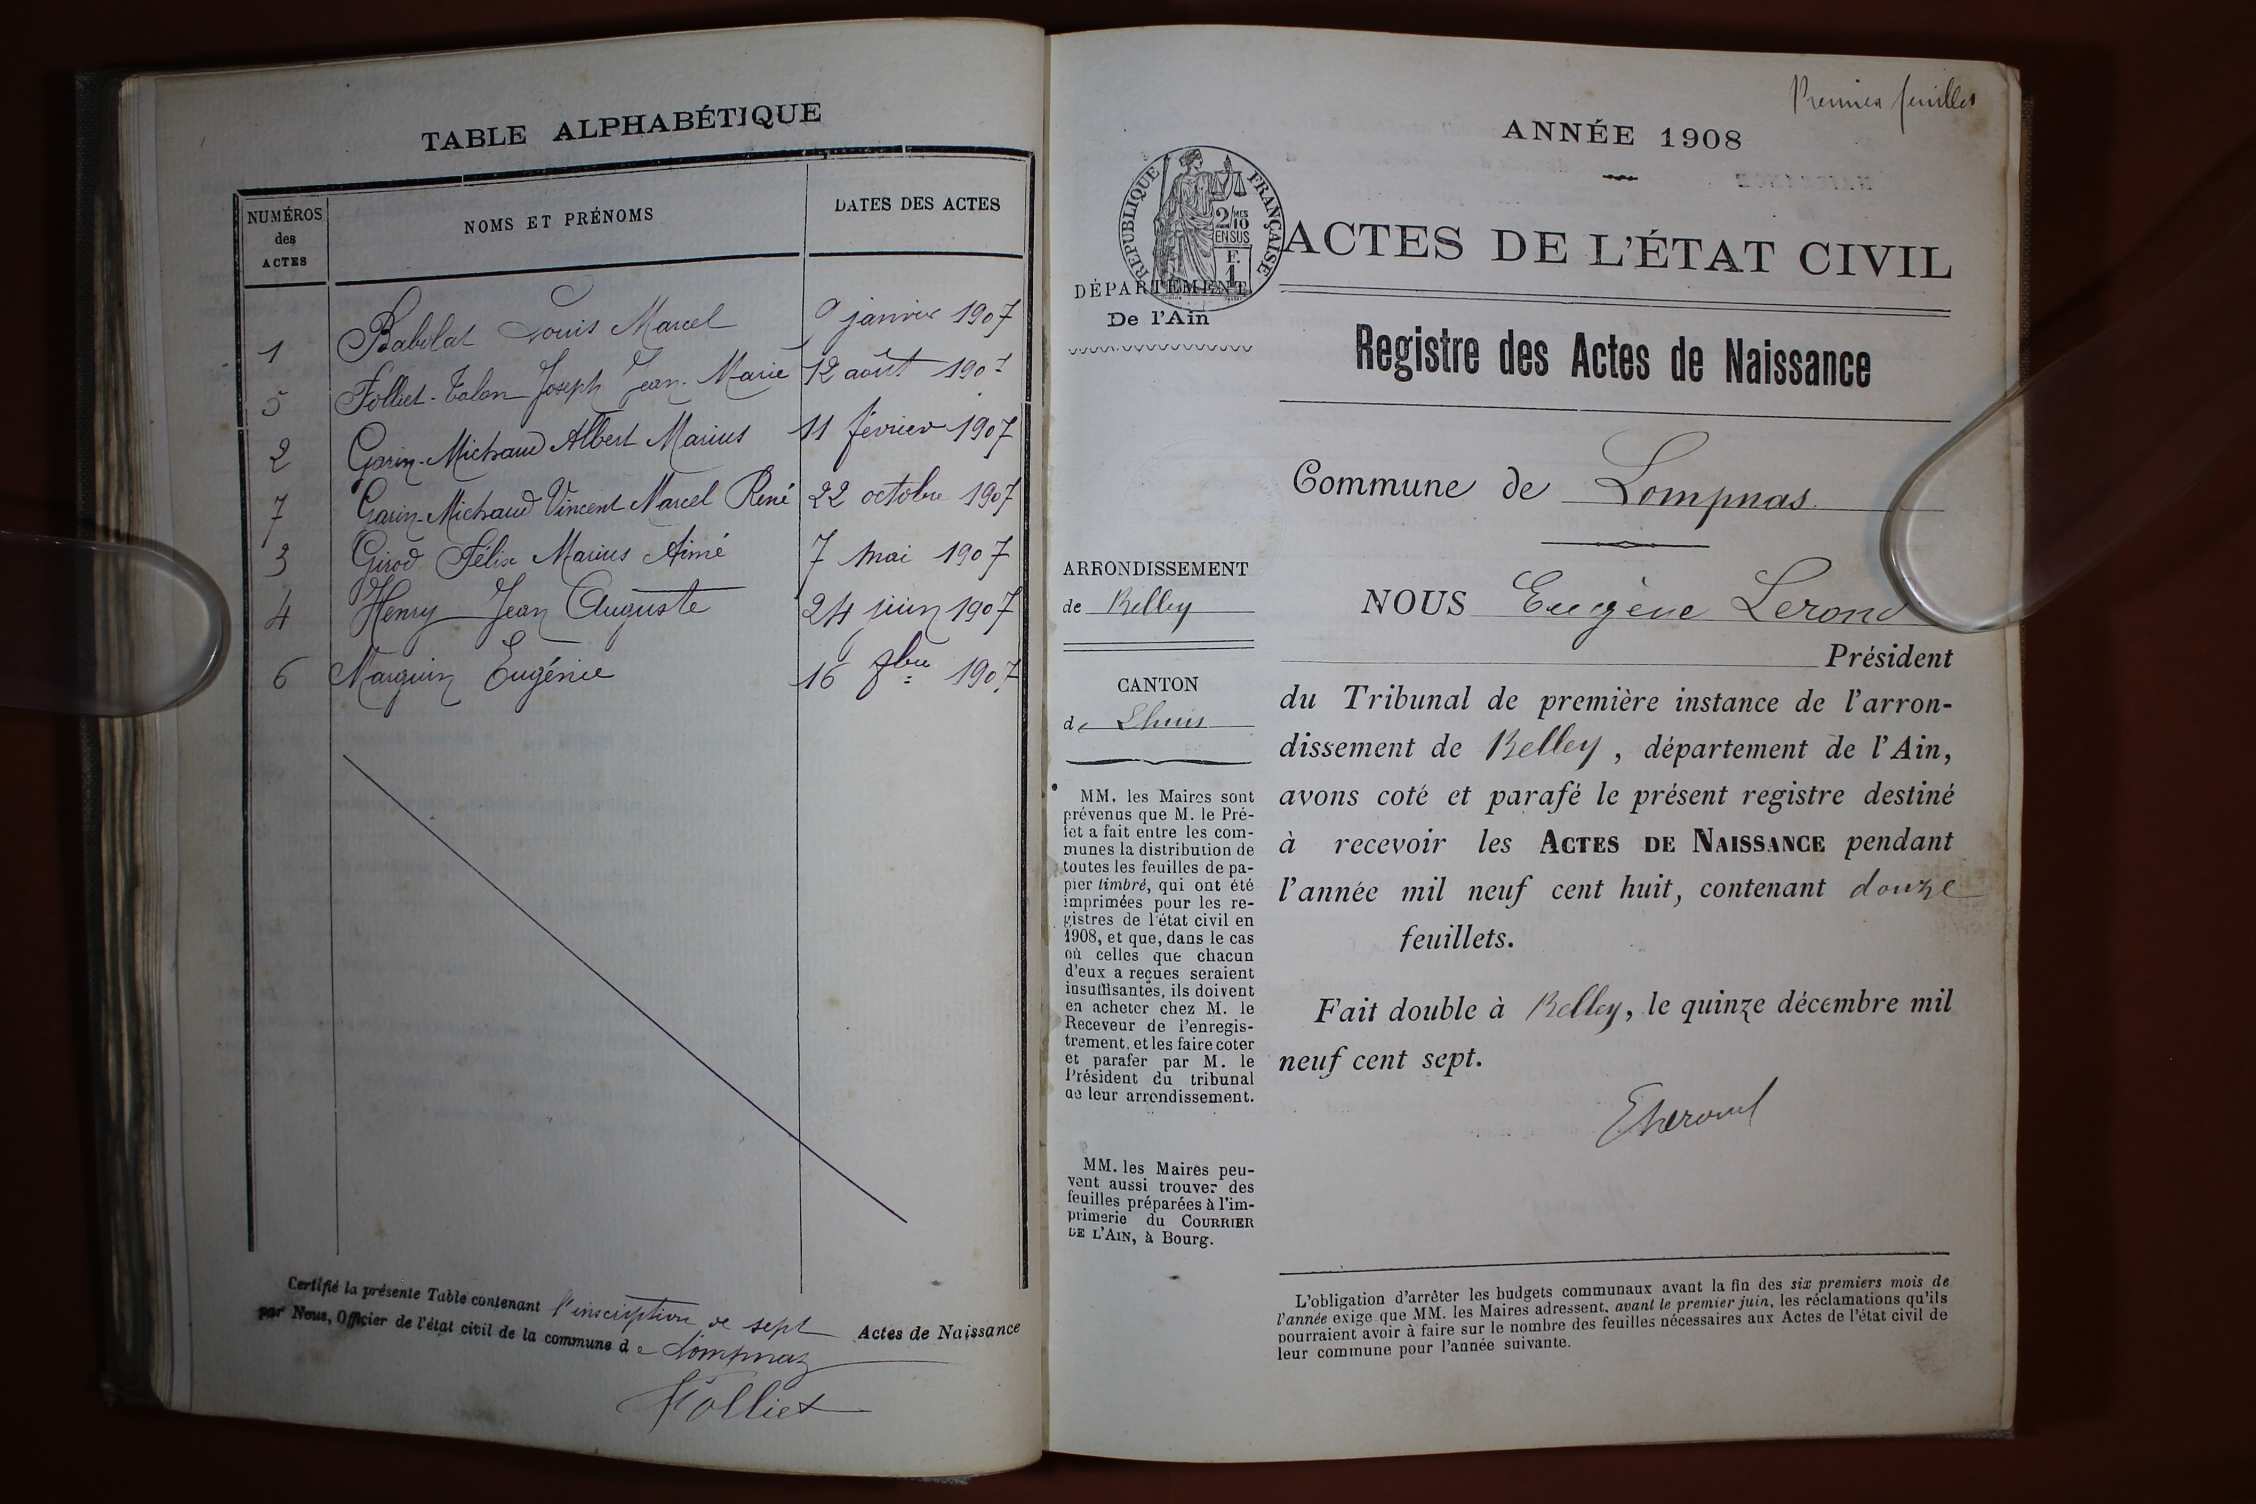 TABLE ALPHABÉTIQUE
NUMÉROS
des
ACTES
NOMS ET PRÉNOMS
DATES DES ACTES
1 Babolat Louis Marcel 9 janvier 1907
5 Folliet-Talon Joseph Jean-Marie 12 août 1907
2 Garin-Michaud Albert Marius 11 février 1907
7 Garin-Michaud Vincent Marcel René 22 octobre 1907
3 Girod Félix Marius Aimé 7 mai 1907
4 Henry Jean Auguste 24 juin 1907
6 Marguin Eugénie 16 7bre 1907
Certifié la présente Table contenant l'inscription de sept Actes de Naissance
par Nous, Officier de l'état civil de la commune de Lompnaz
Folliet
Premier feuillet
ANNÉE 1908
RÉPUBLIQUE FRANÇAISE
2/10
MES
EN SUS
F.
1
ACTES DE L'ÉTAT CIVIL
DÉPARTEMENT
De l'Ain
Registre des Actes de Naissance
Commune de Lompnas
ARRONDISSEMENT
de Belley
CANTON
de Lhuis
MM. les Maires sont
prévenus que M. le Pré-
fet a fait entre les com-
munes la distribution de
toutes les feuilles de pa-
pier timbré, qui ont été
imprimées pour les re-
gistres de l'état civil en
1908, et que, dans le cas
où celles que chacun
d'eux a reçues seraient
insuffisantes, ils doivent
en acheter chez M. le
Receveur de l'enregis-
trement, et les faire coter
et parafer par M. le
Président du tribunal
de leur arrondissement.
MM. les Maires peu-
vent aussi trouver des
feuilles préparées à l'im-
primerie du COURRIER
DE L'AIN, à Bourg.
NOUS Eugène Lerond
Président
du Tribunal de première instance de l'arron-
dissement de Belley, département de l'Ain,
avons coté et parafé le présent registre destiné
à recevoir les ACTES DE NAISSANCE pendant
l'année mil neuf cent huit, contenant douze
feuillets.
Fait double à Belley, le quinze décembre mil
neuf cent sept.
L'obligation d'arrêter les budgets communaux avant la fin des six premiers mois de
l'année exige que MM. les Maires adressent, avant le premier juin, les réclamations qu'ils
pourraient avoir à faire sur le nombre des feuilles nécessaires aux Actes de l'état civil de
leur commune pour l'année suivante.